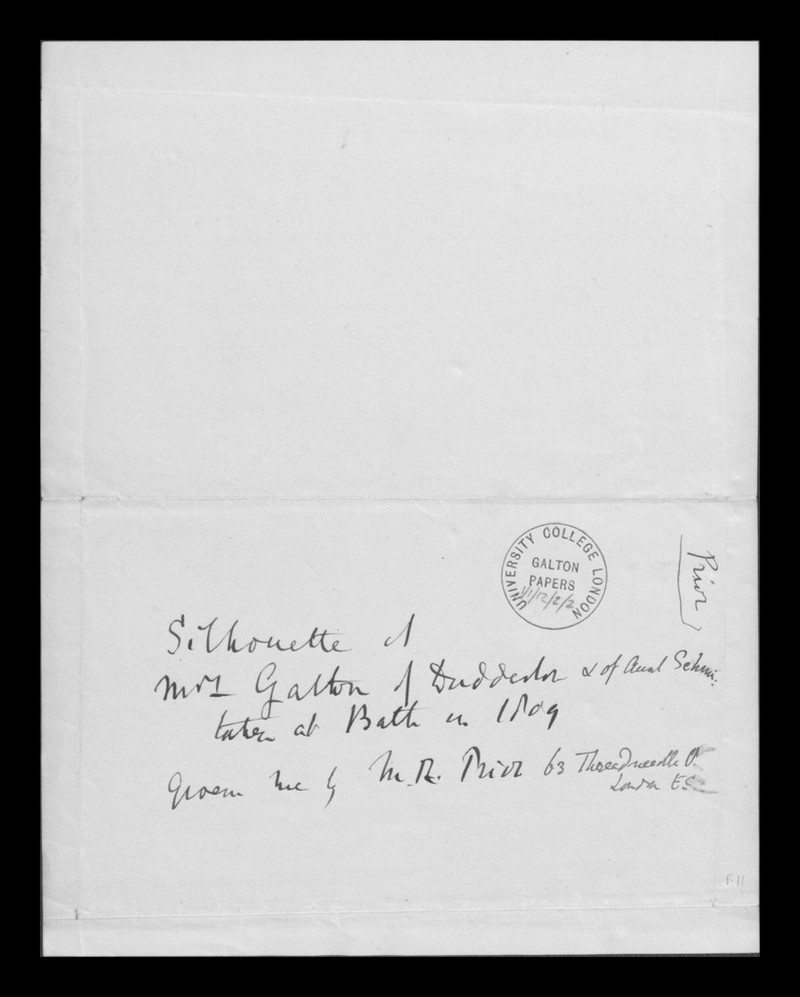 UNIVERSITY COLLEGE LONDON
GALTON
PAPERS
1/1/12/2/2
Prior
Silhouette of
Mrs Galton of Duddeston & of Aunt Schim:
taken at Bath in 1809
given me by M. R. Prior 63 Threadneedle
London E.C.